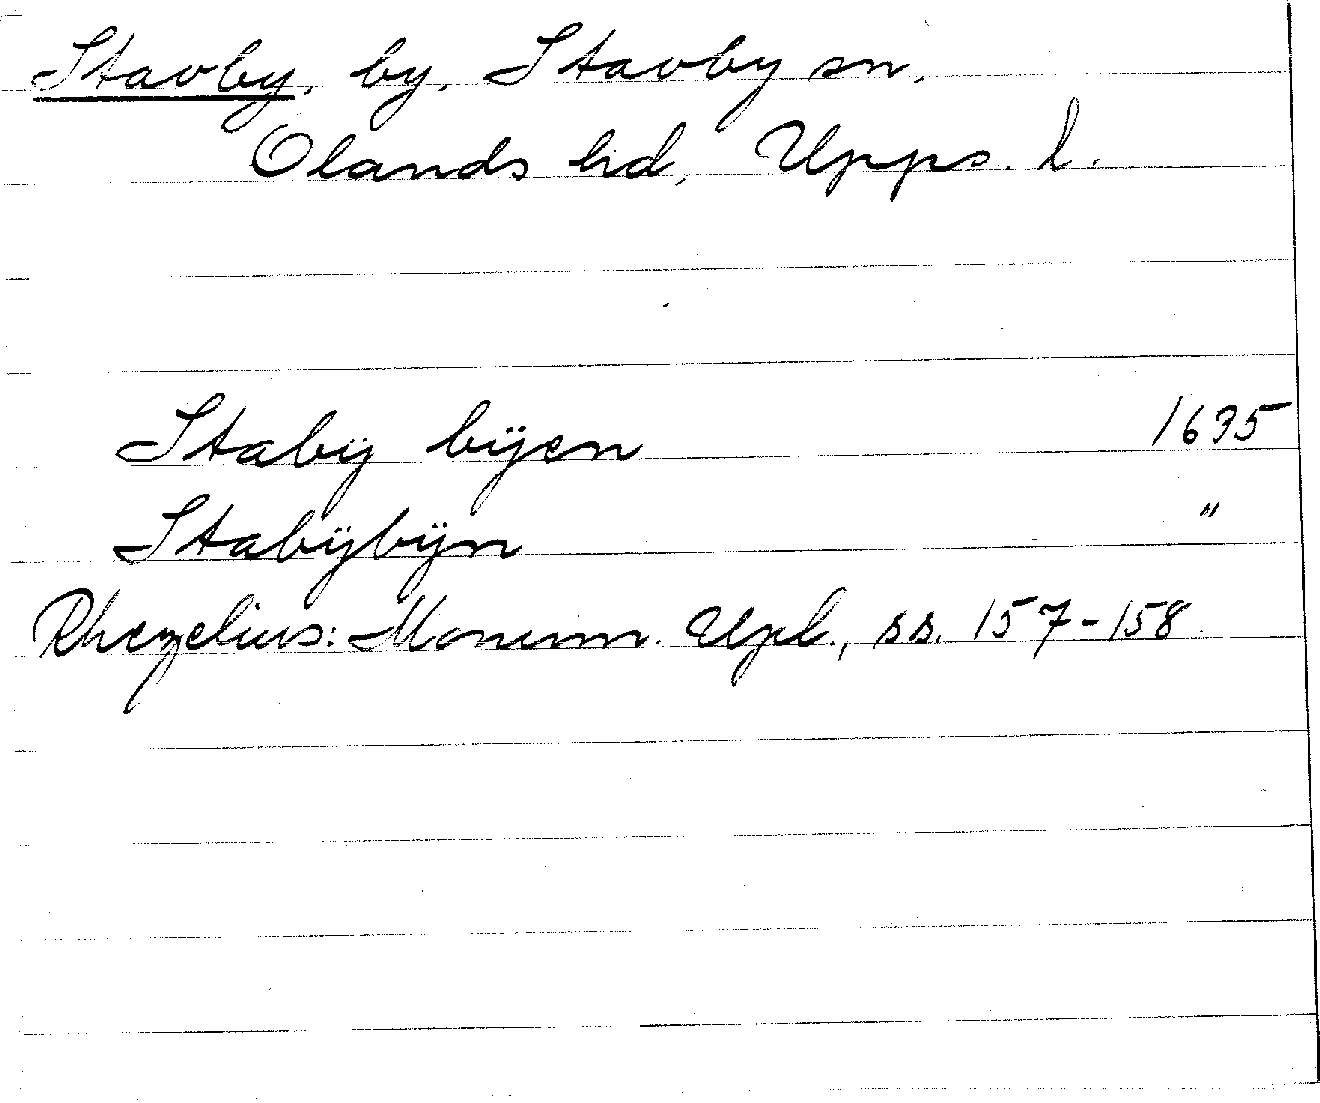 Stavby, by, Stavby sn,
Olands hd, Upps. l.
Stabÿ bÿen 1635
Stabÿbÿn "
Rhezelius: Monum. Upl., ss. 157-158